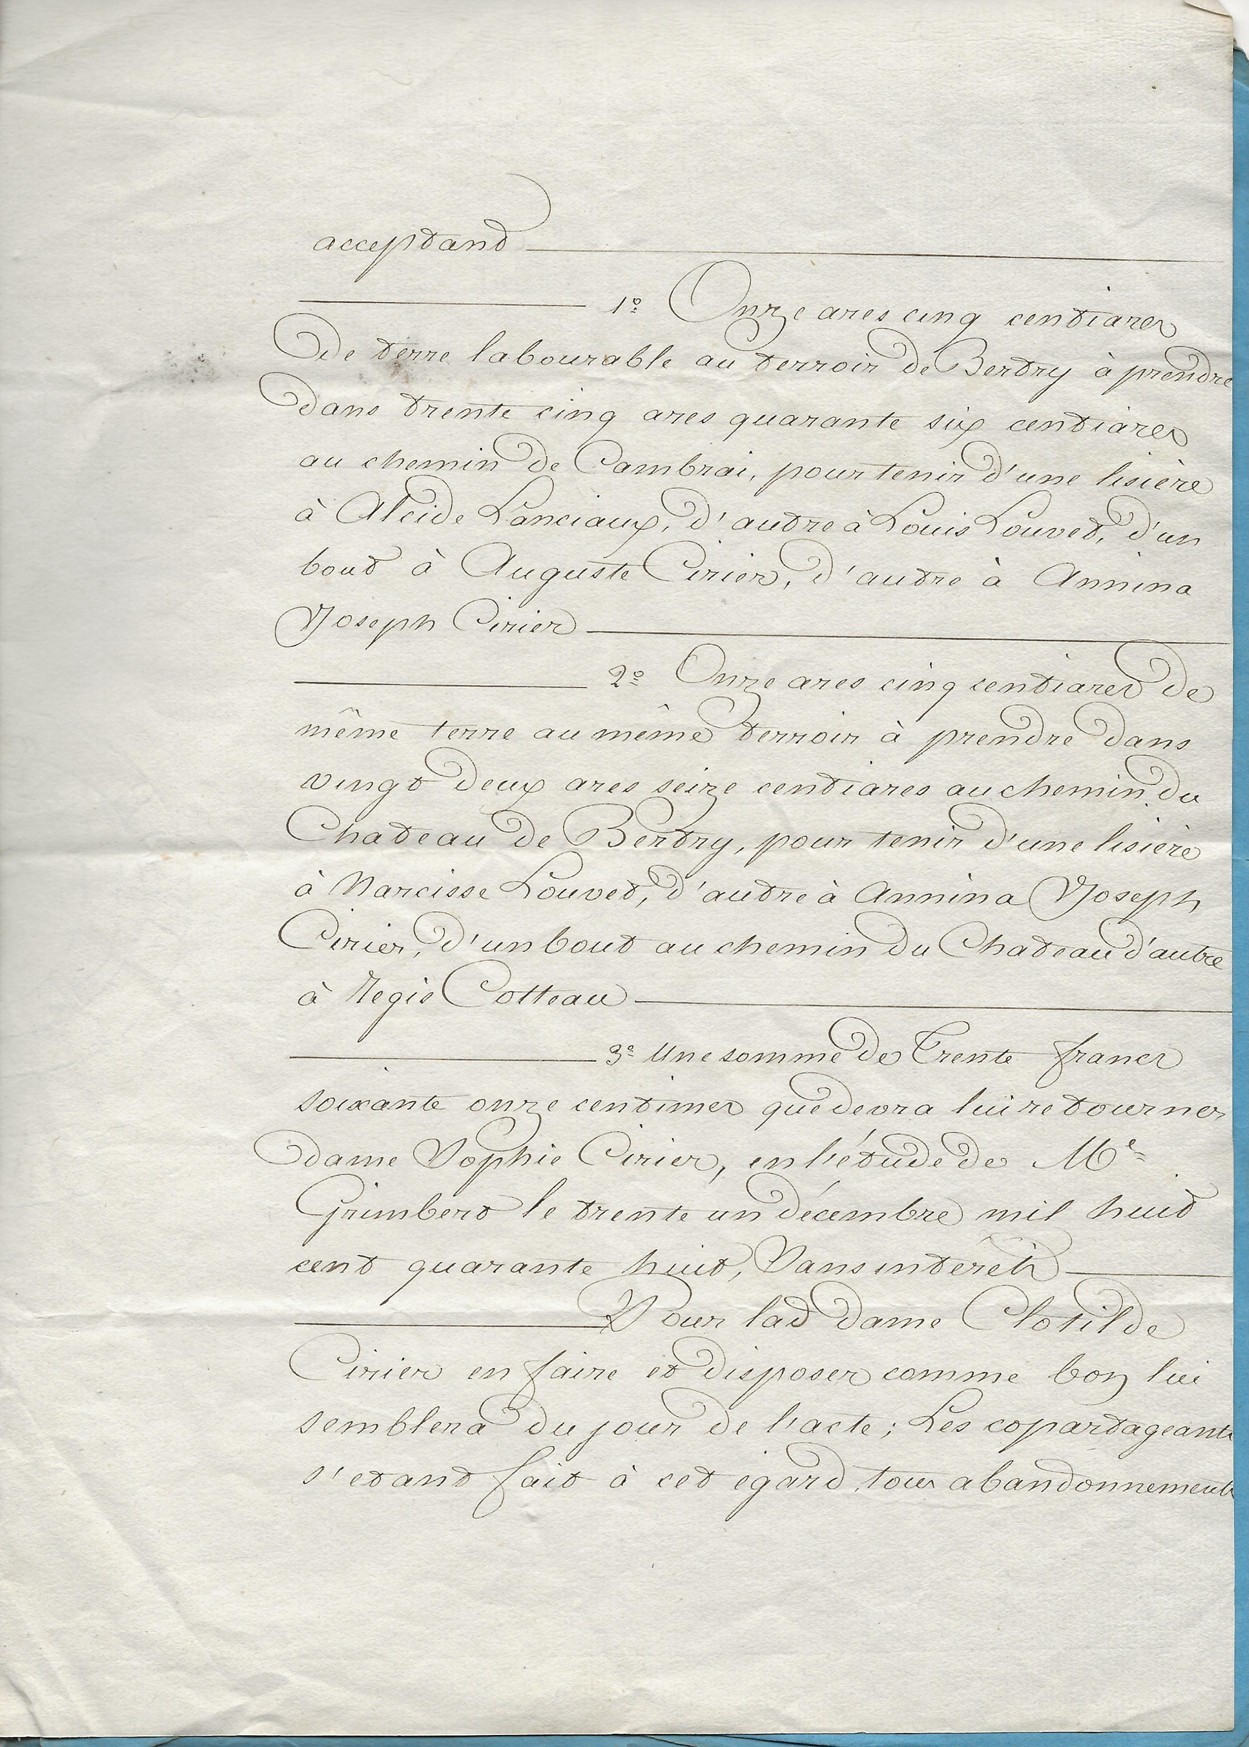 acceptant
1º Onze ares cinq centiares
de terre labourable au terroir de Bertry à prendre
dans trente cinq ares quarante six centiares
au chemin de Cambrai, pour tenir d'une lisière
à Alcide Lanciaux, d'autre à Louis Louvet, d'un
bout à Auguste Cirier, d'autre à Annina
Joseph Cirier
2º Onze ares cinq centiares de
même terre au même terroir à prendre dans
vingt deux ares seize centiares au chemin du
Chateau de Bertry, pour tenir d'une lisière
à Narcisse Louvet, d'autre à Annina Joseph
Cirier, d'un bout au chemin du Chateau d'autre
à Regis Cotteau
3º Une somme de Trente francs
soixante onze centimes que devra lui retourner
dame Sophie Cirier, en l'étude de Me
Grimbert le trente un décembre mil huit
cent quarante huit, Sans intérêts
Pour lad dame Clotilde
Cirier en faire et disposer comme bon lui
semblera du jour de l'acte; Les copartageants
s'etant fait à cet egard tous abandonnements